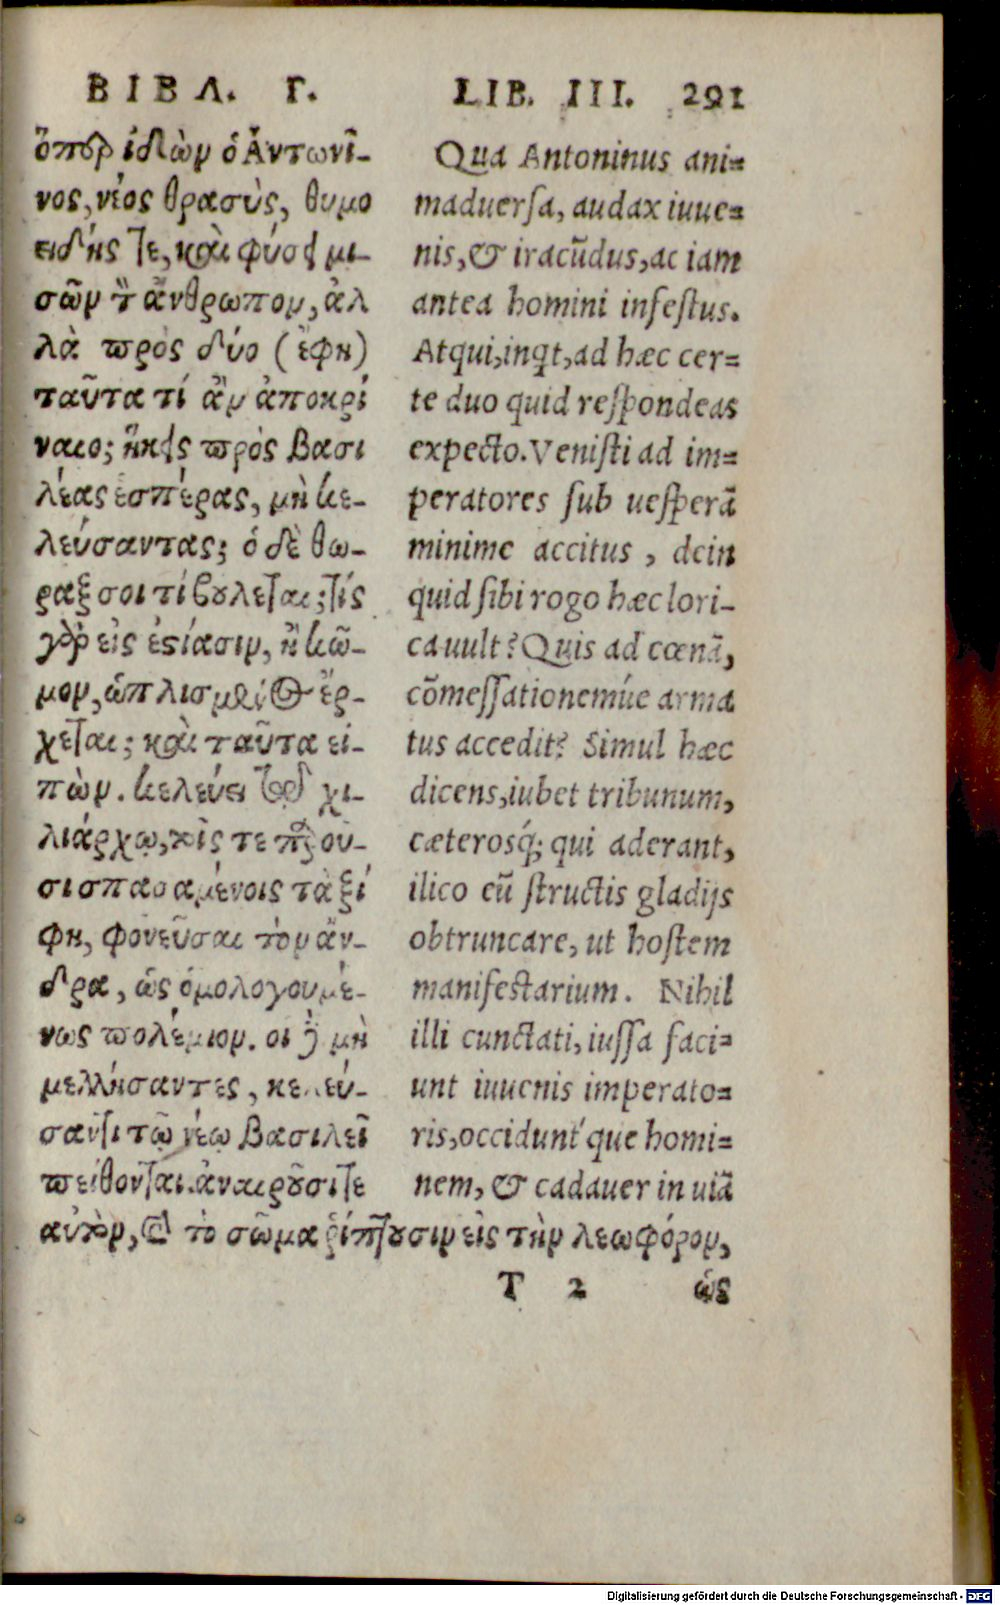 ΒΙΒΛ. Γ.
ὅπερ ἰδὼν ὁ Ἀντωνῖ-
νος, νέος θρασὺς, θυμο
ειδής τε, καὶ φύσει μι-
σῶν τ ἄνθρωπον, ἀλ
λὰ πρὸς δύο (ἔφη)
ταῦτα τί ἂν ἀποκρί
ναιο; ἥκεις πρὸς βασι
λέας ἑσπέρας, μὴ κε-
λεύσαντας; ὁ δὲ θω-
ραξ σοι τί βούλεται; τίς
γὰρ εἰς ἑστίασιν, ἢ κῶ-
μον, ὡπλισμένος ἔρ-
χεται; καὶ ταῦτα εἰ-
πὼν. κελεύει τῷ χι-
λιάρχῳ, τοῖς τε παροῦ-
σι σπασαμένοις τὰ ξί
φη, φονεῦσαι τὸν ἄν-
δρα, ὡς ὁμολογουμέ-
νως πολέμιον. οἱ δὲ μὴ
μελλήσαντες, κελεύ-
σαντι τῷ νέῳ βασιλεῖ
πείθονται. ἀναιροῦσι τε
αὐτὸν, καὶ τὸ σῶμα ῥίπτουσιν εἰς τὴν λεωφόρον,
LIB. III. 291
Qua Antoninus ani=
maduersa, audax iuue=
nis, & iracūdus, ac iam
antea homini infestus.
Atqui, inqt, ad hæc cer=
te duo quid respondeas
expecto. Venisti ad im=
peratores sub uesperā
minime accitus, dein
quid sibi rogo hæc lori-
ca uult? Quis ad cœnā,
cōmessationemúe arma
tus accedit? Simul hæc
dicens, iubet tribunum,
cæterosq́; qui aderant,
ilico cū structis gladijs
obtruncare, ut hostem
manifestarium. Nihil
illi cunctati, iussa faci=
unt iuuenis imperato=
ris, occidunt́que homi=
nem, & cadauer in uiā
T 2 ὡς
Digitalisierung gefördert durch die Deutsche Forschungsgemeinschaft - DFG